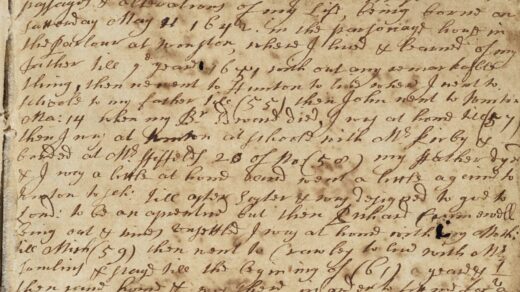 passages & alterations of my life, being borne on
Satterday May 11 164 in the parsonage house in
the parlour at Wonston where I lived & learned of my
father till ye yeare 1641 with out any remarkable
thing, then we went to Hunton to live when I went to
schoole to my father till (55) then John went to
Ma: 14 when my Br died I was at home till (57)
then I was at schoole with Mr Kirby &
borded at Mr 20 of Ma (58) my father dyed
& I was a little at home and went a little againe to
to till after Easter & was designed to goe to
Lond: to be an aprentice but then Richard Crumwell
being out & times unsettled I was at home with my Moth:
till Mich (59) then went to Crawly to live with Mr
& stayd till the begining of (61) a yeare &
then home &